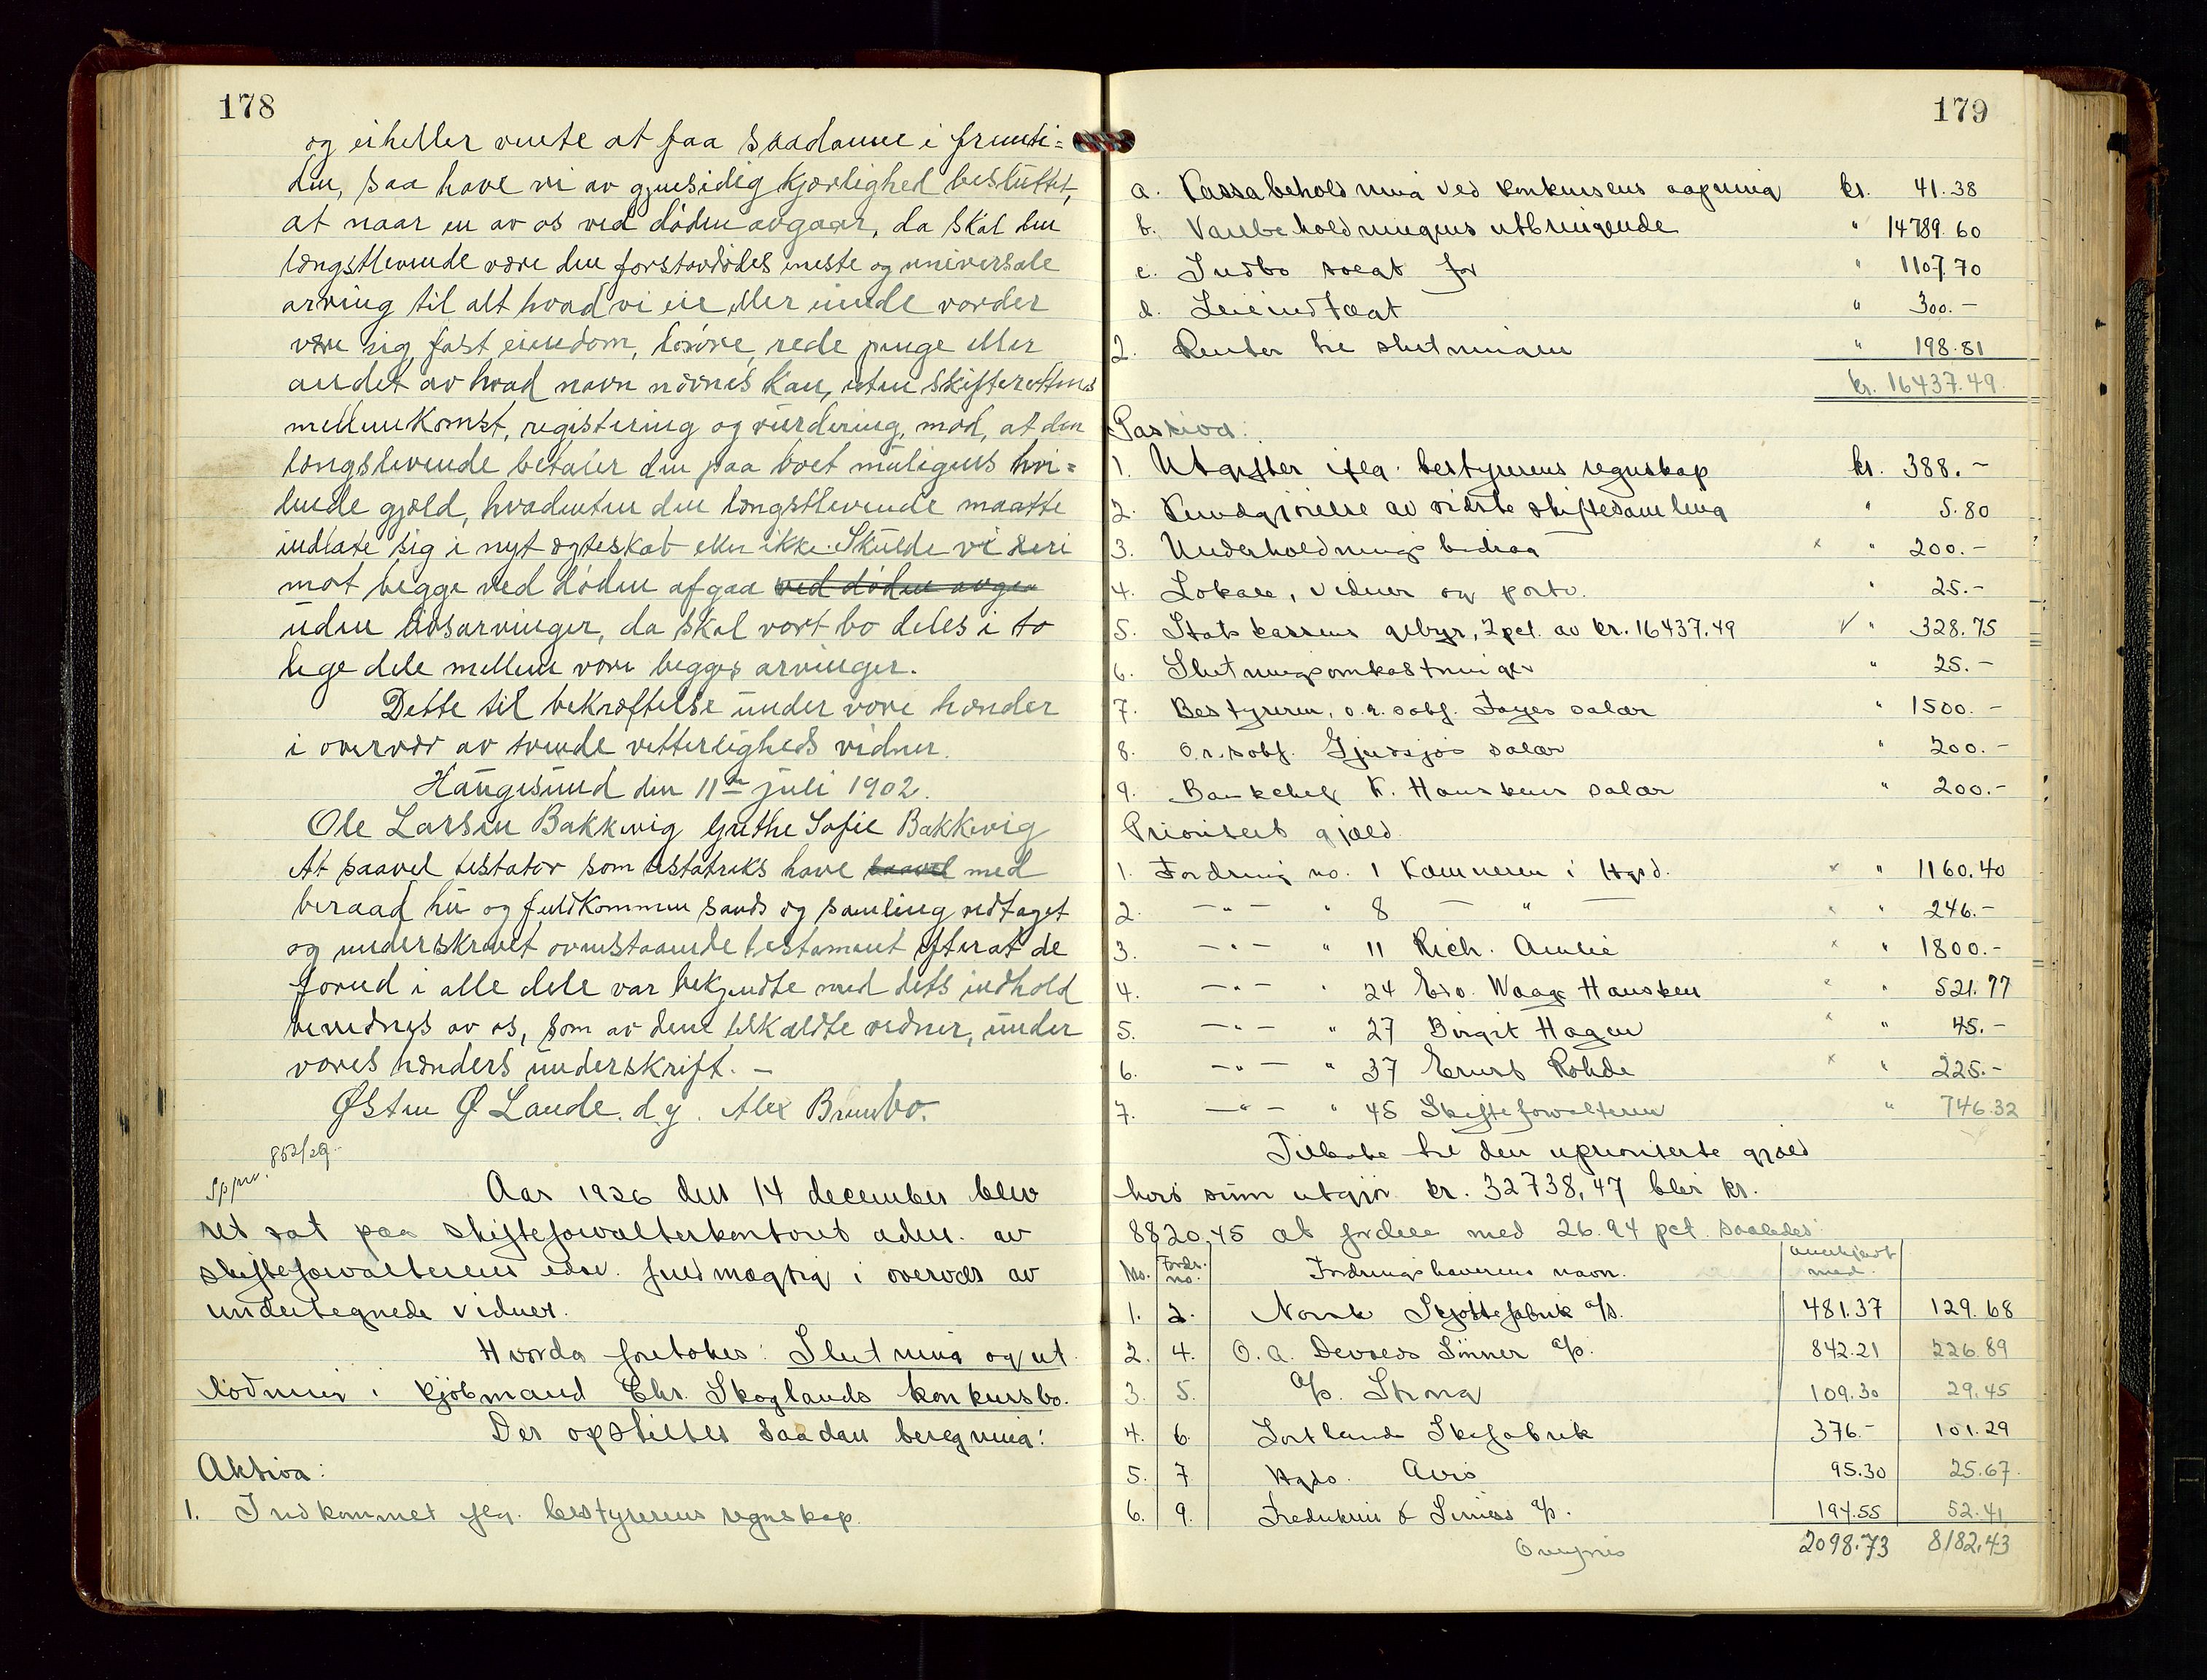 178
og eiheller vente at faa saadanne i fremti=
den, saa have vi av gjensidig kjærlighed besluttet,
at naar en av os ved døden avgaar, da skal den
længstlevende være den førstavdødes eneste og universale
arving til alt hvad vi eie eller eiende vorder
være sig fast eiendom, løsøre, rede penge eller
andet av hvad navn nævnes kan, uten skifterettens
mellemkomst, registering og vurdering, mod, at den
længslevende betaler den paa boet muligens hvi=
lende gjæld, hvadenten den længstlevende maatte
indlate sig i nyt ægteskab eller ikke. Skulde vi deri
mot begge ved døden afgaa ved døden avgaa
uden livsarvinger, da skal vort bo deles i to
lige dele mellem vore begges arvinger.
Dette til bekræftelse under vore hænder
i overvær av tvende vitterligheds vidner.
Haugesund den 11te juli 1902.
Ole Larsen Bakkevig Grethe Sofie Bakkevig
At saavel testator som testatriks have saavel med
beraad hu og fuldkommen sands og samling vedtaget
og underskrevet ovenstaaende testament efterat de
forud i alle dele var bekjendte med dets indhold
bevidnes av os, som av dem tilkaldte vidner, under
vores hænders underskrift. —
Østen Ø Lande. d.y. Alex Brumbo.
Sppr. 852/29.
Aar 1926 den 14 december blev
ret sat paa skifteforvalterkontoret adm. av
skifteforvalterens edsv. fuldmægtig i overvær av
undertegnede vidner.
Hvorda foretokes: Slutning og ut
lodning i kjøbmand Chr. Skoglands konkursbo.
Der opstilles saadan beregning:
Aktiva:
1. Indkommet ifлg. bestyrerens regnskap.
179
a. Kassabeholdning ved konkursens aapning kr. 41.38
b. Varebeholdningens utbringende " 14789.60
c. Indbo solgt for " 1107.70
d. Leieindtægt " 300.-
2. Renter til slutningen " 198.81
kr. 16437.49.
Passiva:
1. Utgifter iflg. bestyrerens regnskap kr. 388.-
2. Kundgjørelse av sidste skiftesamling " 5.80
3. Underholdnings bidrag " 200.-
4. Lokale, vidner og porto. " 25.-
5. Statskassens gebyr, 2 pct. av kr. 16437.49 " 328.75
6. Slutningsomkostninger " 25.-
7. Bestyreren, o.r.sakf. Fayes salær " 1500.-
8. O.r.sakf. Gjersjøs salær " 200.-
9. Bankchef K. Hauskens salær " 200.-
Prioritert gjæld.
1. Fordring no. 1 Kæmneren i Hgsd. " 1160.40
2. —"— " 8 — " — " 246.-
3. —"— " 11 Rich. Amlie " 1800.-
4. —"— " 24 Waage Hausken " 521.77
5. —"— " 27 Birgit Hagen " 45.-
6. —"— " 37 Ernst Rohde " 225.-
7. —"— " 45 Skifteforvalteren " 746.32
Tilbake til den uprioriterte gjæld
hvis sum utgjør kr. 32738,47 blir kr.
8820,45 at fordele med 26.94 pct. saaledes:
No. Fordr. no. Fordringshaverens navn. anerkjendt med.
1. 2. Norsk Skjortefabrik A/S. 481.37 129.68
2. 4. O. A. Devolds Sønner A/S. 842.21 226.89
3. 5. A/S. 109.30 29.45
4. 6. Skofabrik 376.- 101.29
5. 7 Hgds. Avis 95.30 25.67.
6. 9. A/S. 194.55 52.41
Overføres 2098.73 8182.43